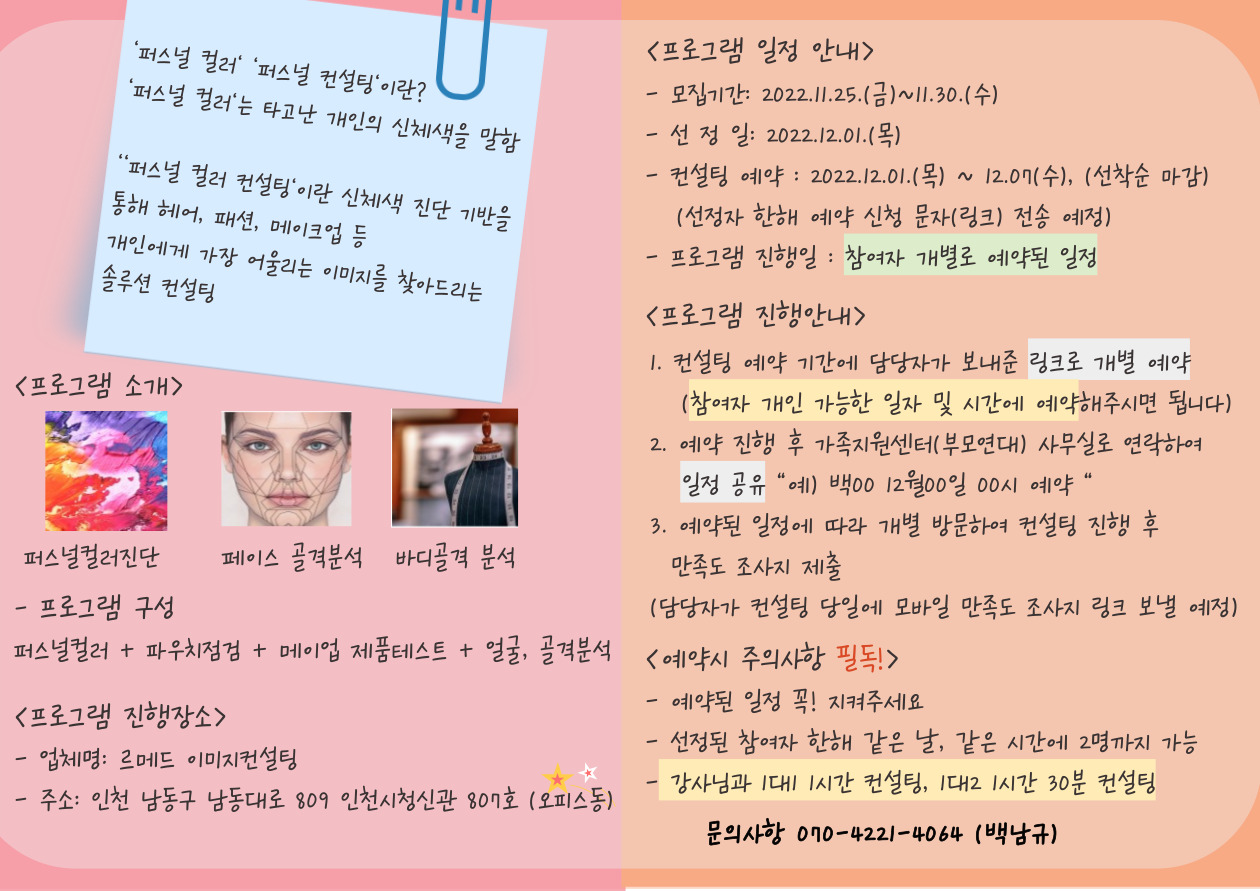 ‘퍼스널 컬러‘ ‘퍼스널 컨설팅‘이란?
‘퍼스널 컬러‘는 타고난 개인의 신체색을 말함
‘‘퍼스널 컬러 컨설팅‘이란 신체색 진단 기반을
통해 헤어, 패션, 메이크업 등
개인에게 가장 어울리는 이미지를 찾아드리는
솔루션 컨설팅
<프로그램 소개>
퍼스널컬러진단
페이스 골격분석
바디골격 분석
- 프로그램 구성
퍼스널컬러 + 파우치점검 + 메이업 제품테스트 + 얼굴, 골격분석
<프로그램 진행장소>
- 업체명: 르메드 이미지컨설팅
- 주소: 인천 남동구 남동대로 809 인천시청신관 807호 (오피스동)
<프로그램 일정 안내>
- 모집기간: 2022.11.25.(금)~11.30.(수)
- 선 정 일: 2022.12.01.(목)
- 컨설팅 예약 : 2022.12.01.(목) ~ 12.07(수), (선착순 마감)
(선정자 한해 예약 신청 문자(링크) 전송 예정)
- 프로그램 진행일 : 참여자 개별로 예약된 일정
<프로그램 진행안내>
1. 컨설팅 예약 기간에 담당자가 보내준 링크로 개별 예약
(참여자 개인 가능한 일자 및 시간에 예약해주시면 됩니다)
2. 예약 진행 후 가족지원센터(부모연대) 사무실로 연락하여
일정 공유 “예) 백00 12월00일 00시 예약 “
3. 예약된 일정에 따라 개별 방문하여 컨설팅 진행 후
만족도 조사지 제출
(담당자가 컨설팅 당일에 모바일 만족도 조사지 링크 보낼 예정)
<예약시 주의사항 필독!>
- 예약된 일정 꼭! 지켜주세요
- 선정된 참여자 한해 같은 날, 같은 시간에 2명까지 가능
- 강사님과 1대1 1시간 컨설팅, 1대2 1시간 30분 컨설팅
문의사항 070-4221-4064 (백남규)